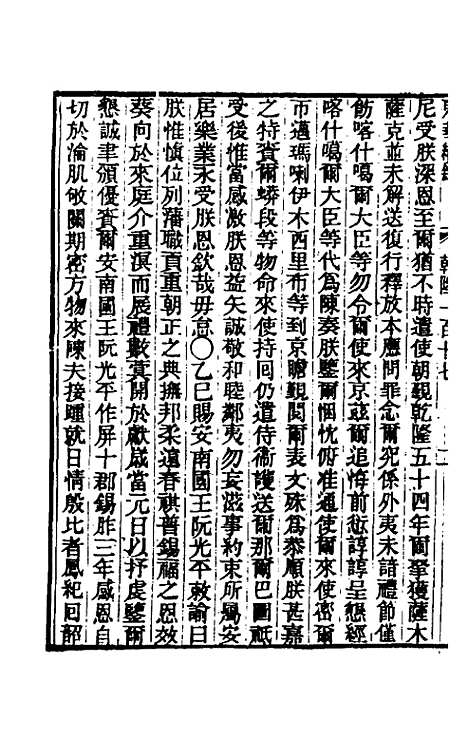 尼受朕深恩至爾猶不時遣使朝覲乾隆五十四年爾拏獲薩木
薩克並未解送復行釋放本應問罪念爾究係外夷未諳禮節僅
飭喀什噶爾大臣等勿令爾使來京茲爾追悔前愆諄諄呈懇經
喀什噶爾大臣等代為陳奏朕鑒爾悃忱俯准通使爾來使密爾
市邁瑪喇伊木西里布等到京瞻覲閱爾表文殊為恭順朕甚嘉
之特賚爾蟒段等物命來使持回仍遣侍衞護送爾那爾巴圖祗
受後惟當感激朕恩益矢誠敬和睦鄰夷勿妄滋事約束所屬安
居樂業永受朕恩欽哉毋怠○乙巳賜安南國王阮光平敕諭曰
朕惟慎位列藩職貢重朝正之典撫邦柔遠春祺普錫福之恩效
葵向於來庭介重溟而展禮數蓂開於獻歲當元日以抒虔鑒爾
懇誠聿頒優賚爾安南國王阮光平作屏十郡錫胙三年感恩自
切於淪肌敏關期密方物來陳夫接踵就日情殷比者鳳紀回韶